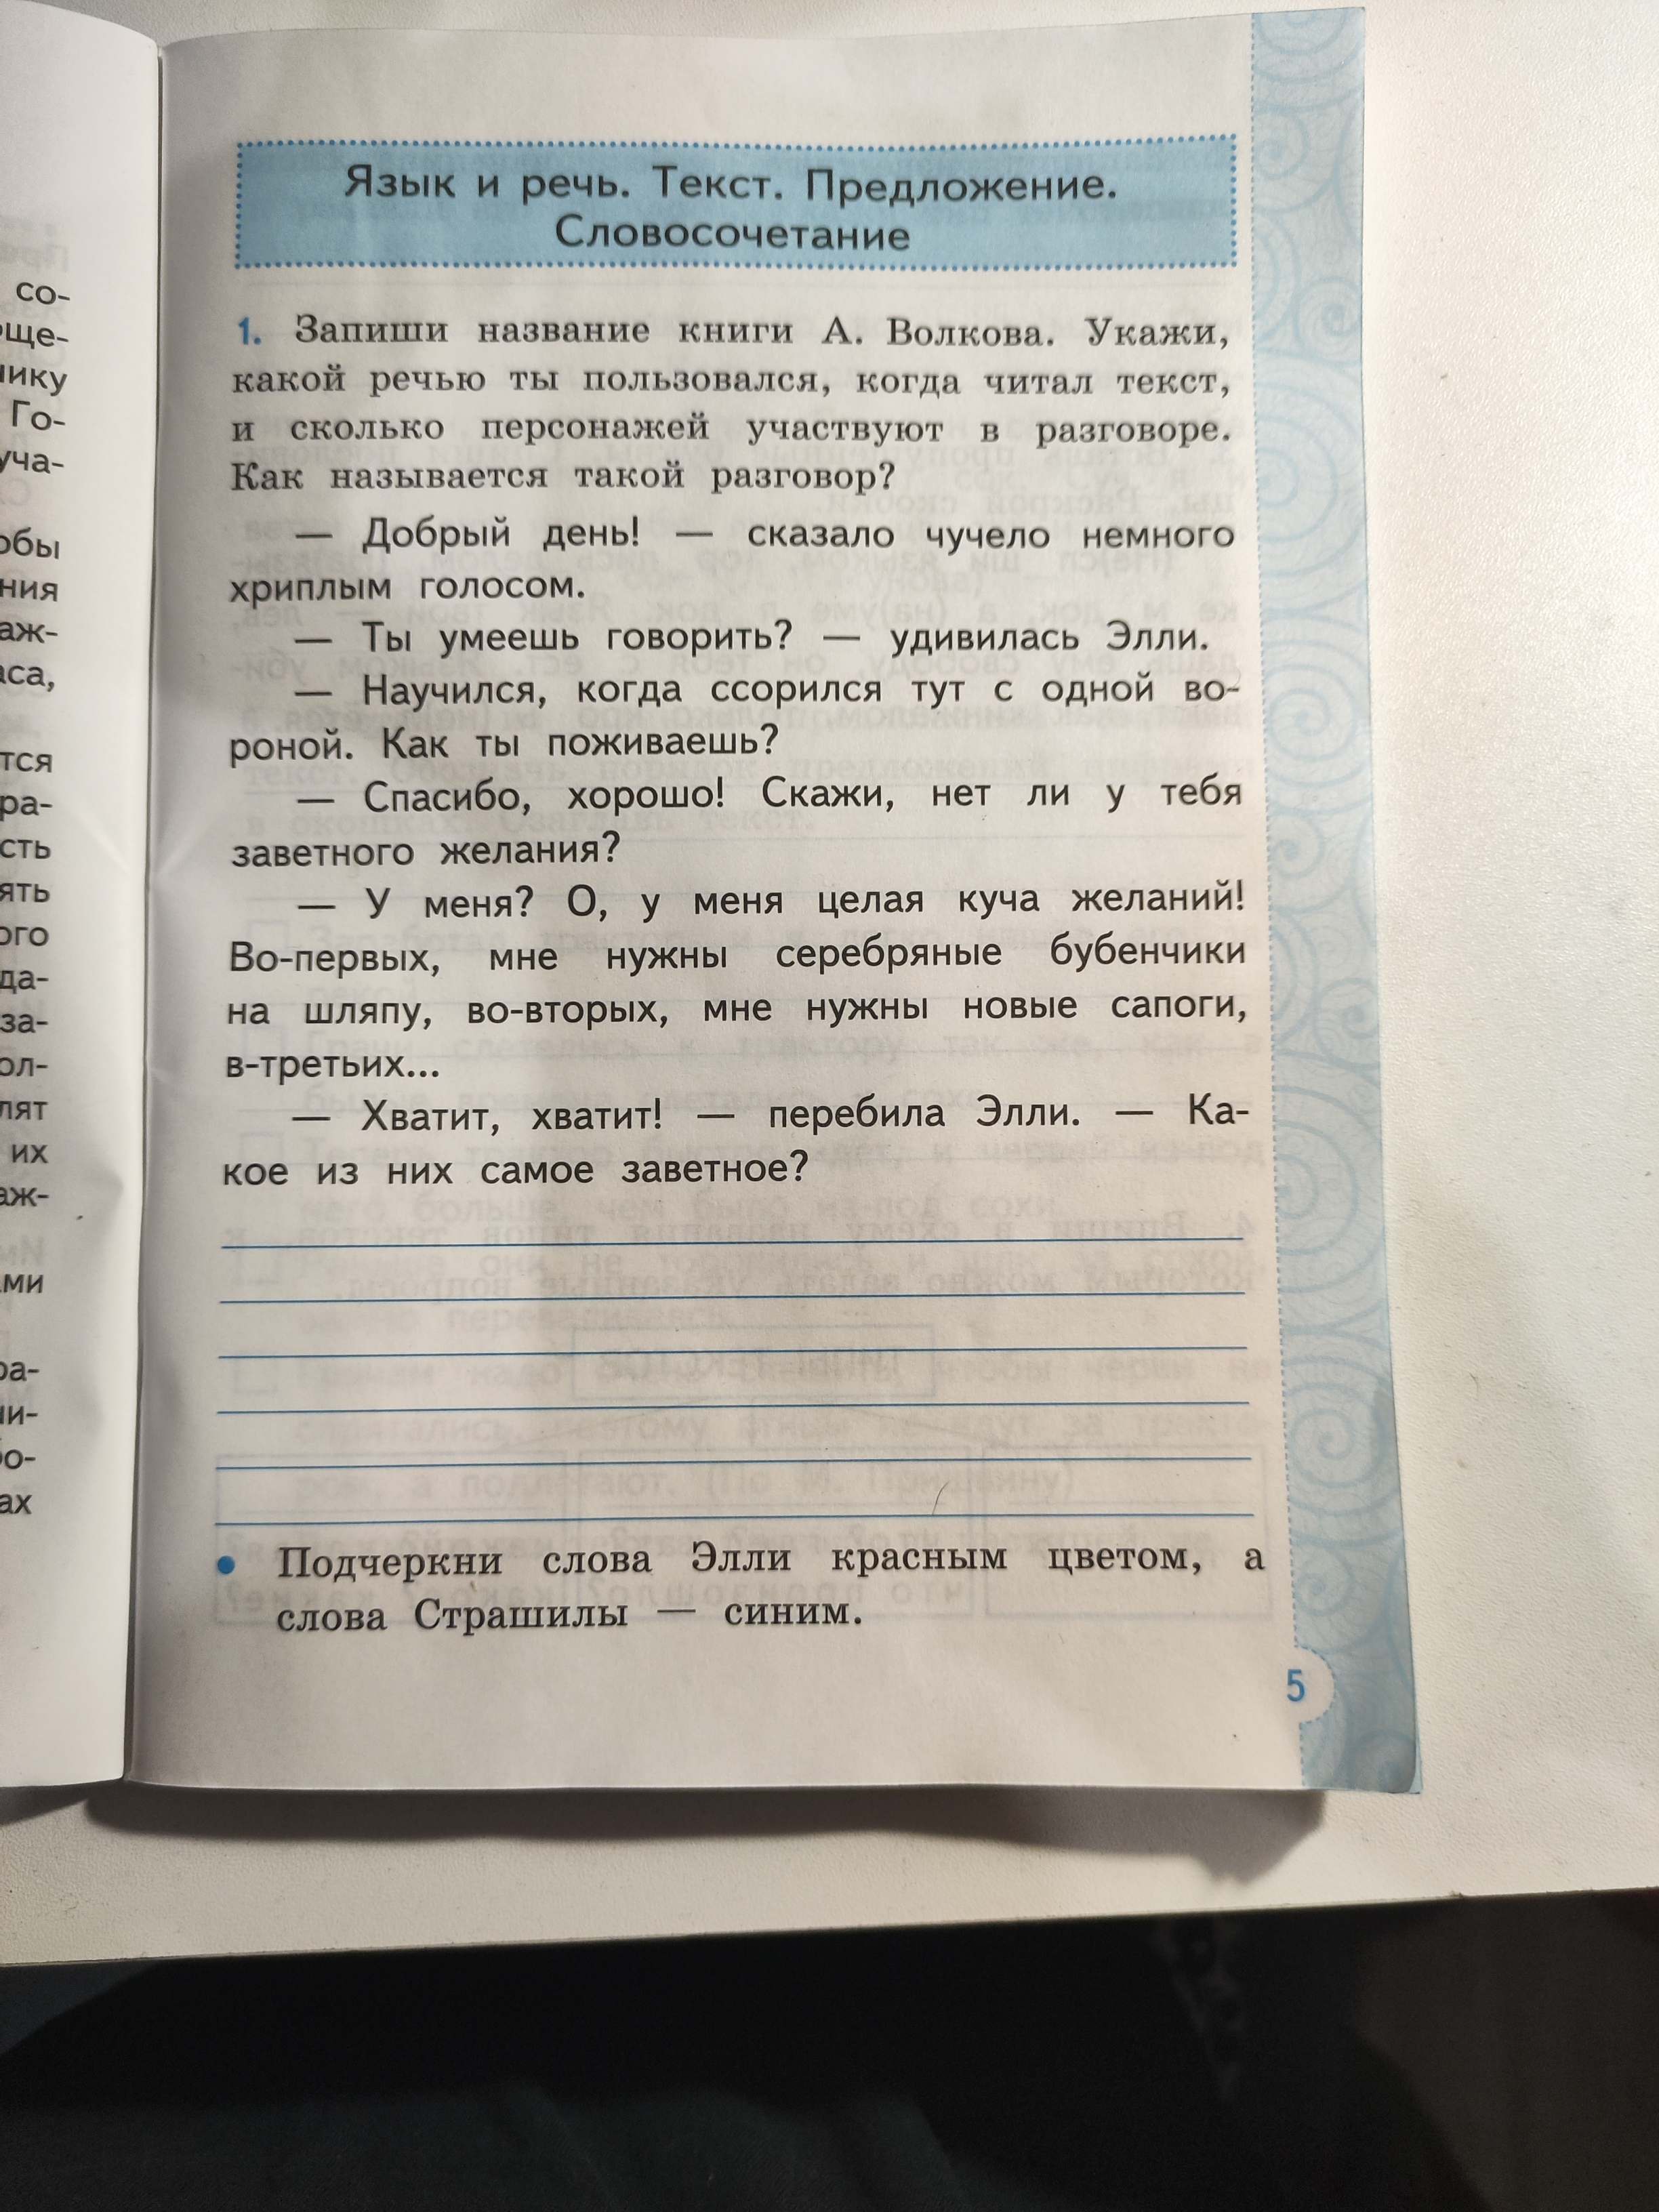 со-
ще-
нику
Го-
уча-
обы
ния
аж-
аса,
тся
ра-
сть
ять
ого
да-
за-
ол-
лят
их
аж-
ами
ра-
ли-
бо-
ах
Язык и речь. Текст. Предложение.
Словосочетание
1. Запиши название книги А. Волкова. Укажи,
какой речью ты пользовался, когда читал текст,
и сколько персонажей участвуют в разговоре.
Как называется такой разговор?
— Добрый день! — сказало чучело немного
хриплым голосом.
— Ты умеешь говорить? — удивилась Элли.
— Научился, когда ссорился тут с одной во-
роной. Как ты поживаешь?
— Спасибо, хорошо! Скажи, нет ли у тебя
заветного желания?
— У меня? О, у меня целая куча желаний!
Во-первых, мне нужны серебряные бубенчики
на шляпу, во-вторых, мне нужны новые сапоги,
в-третьих...
— Хватит, хватит! — перебила Элли. — Ка-
кое из них самое заветное?
• Подчеркни слова Элли красным цветом, а
слова Страшилы — синим.
5